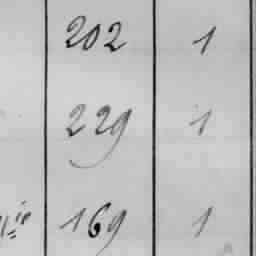 202 1
229 1
169 1